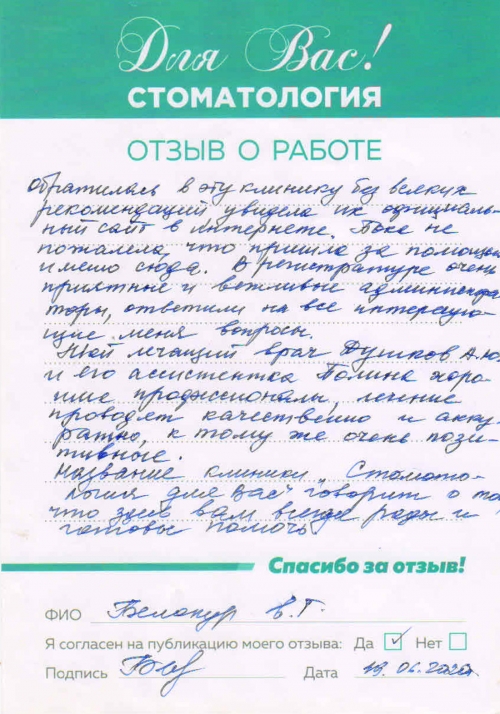 Для Вас!
СТОМАТОЛОГИЯ
ОТЗЫВ О РАБОТЕ
Обратилась в эту клинику без всяких
рекомендаций увидела их официаль-
ный сайт в интернете. Пока не
пожалела, что пришла за помощью
именно сюда. В регистратуре очень
приятные и вежливые администра
торы, ответили на все интересую-
щие меня вопросы.
Мой лечащий врач Душков А.Ю
и его ассистентка Полина хоро-
шие профессионалы, лечение
проводят качественно и акку-
ратно, к тому же очень пози-
тивные.
Название клиники "Стомато-
логия для Вас" говорит о том
что здесь вам всегда рады и
готовы помочь
Спасибо за отзыв!
ФИО В.Г.
Я согласен на публикацию моего отзыва: Да ✓ Нет
Подпись Дата 19.06.2020